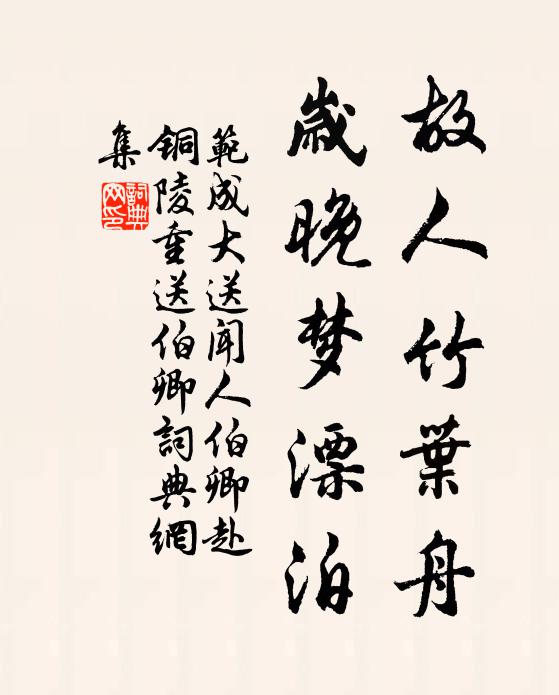 故人竹葉舟
歲晚梦漂泊
範成大送聞人伯卿赴
銅陵重送伯卿詞典網
集
詞典网印